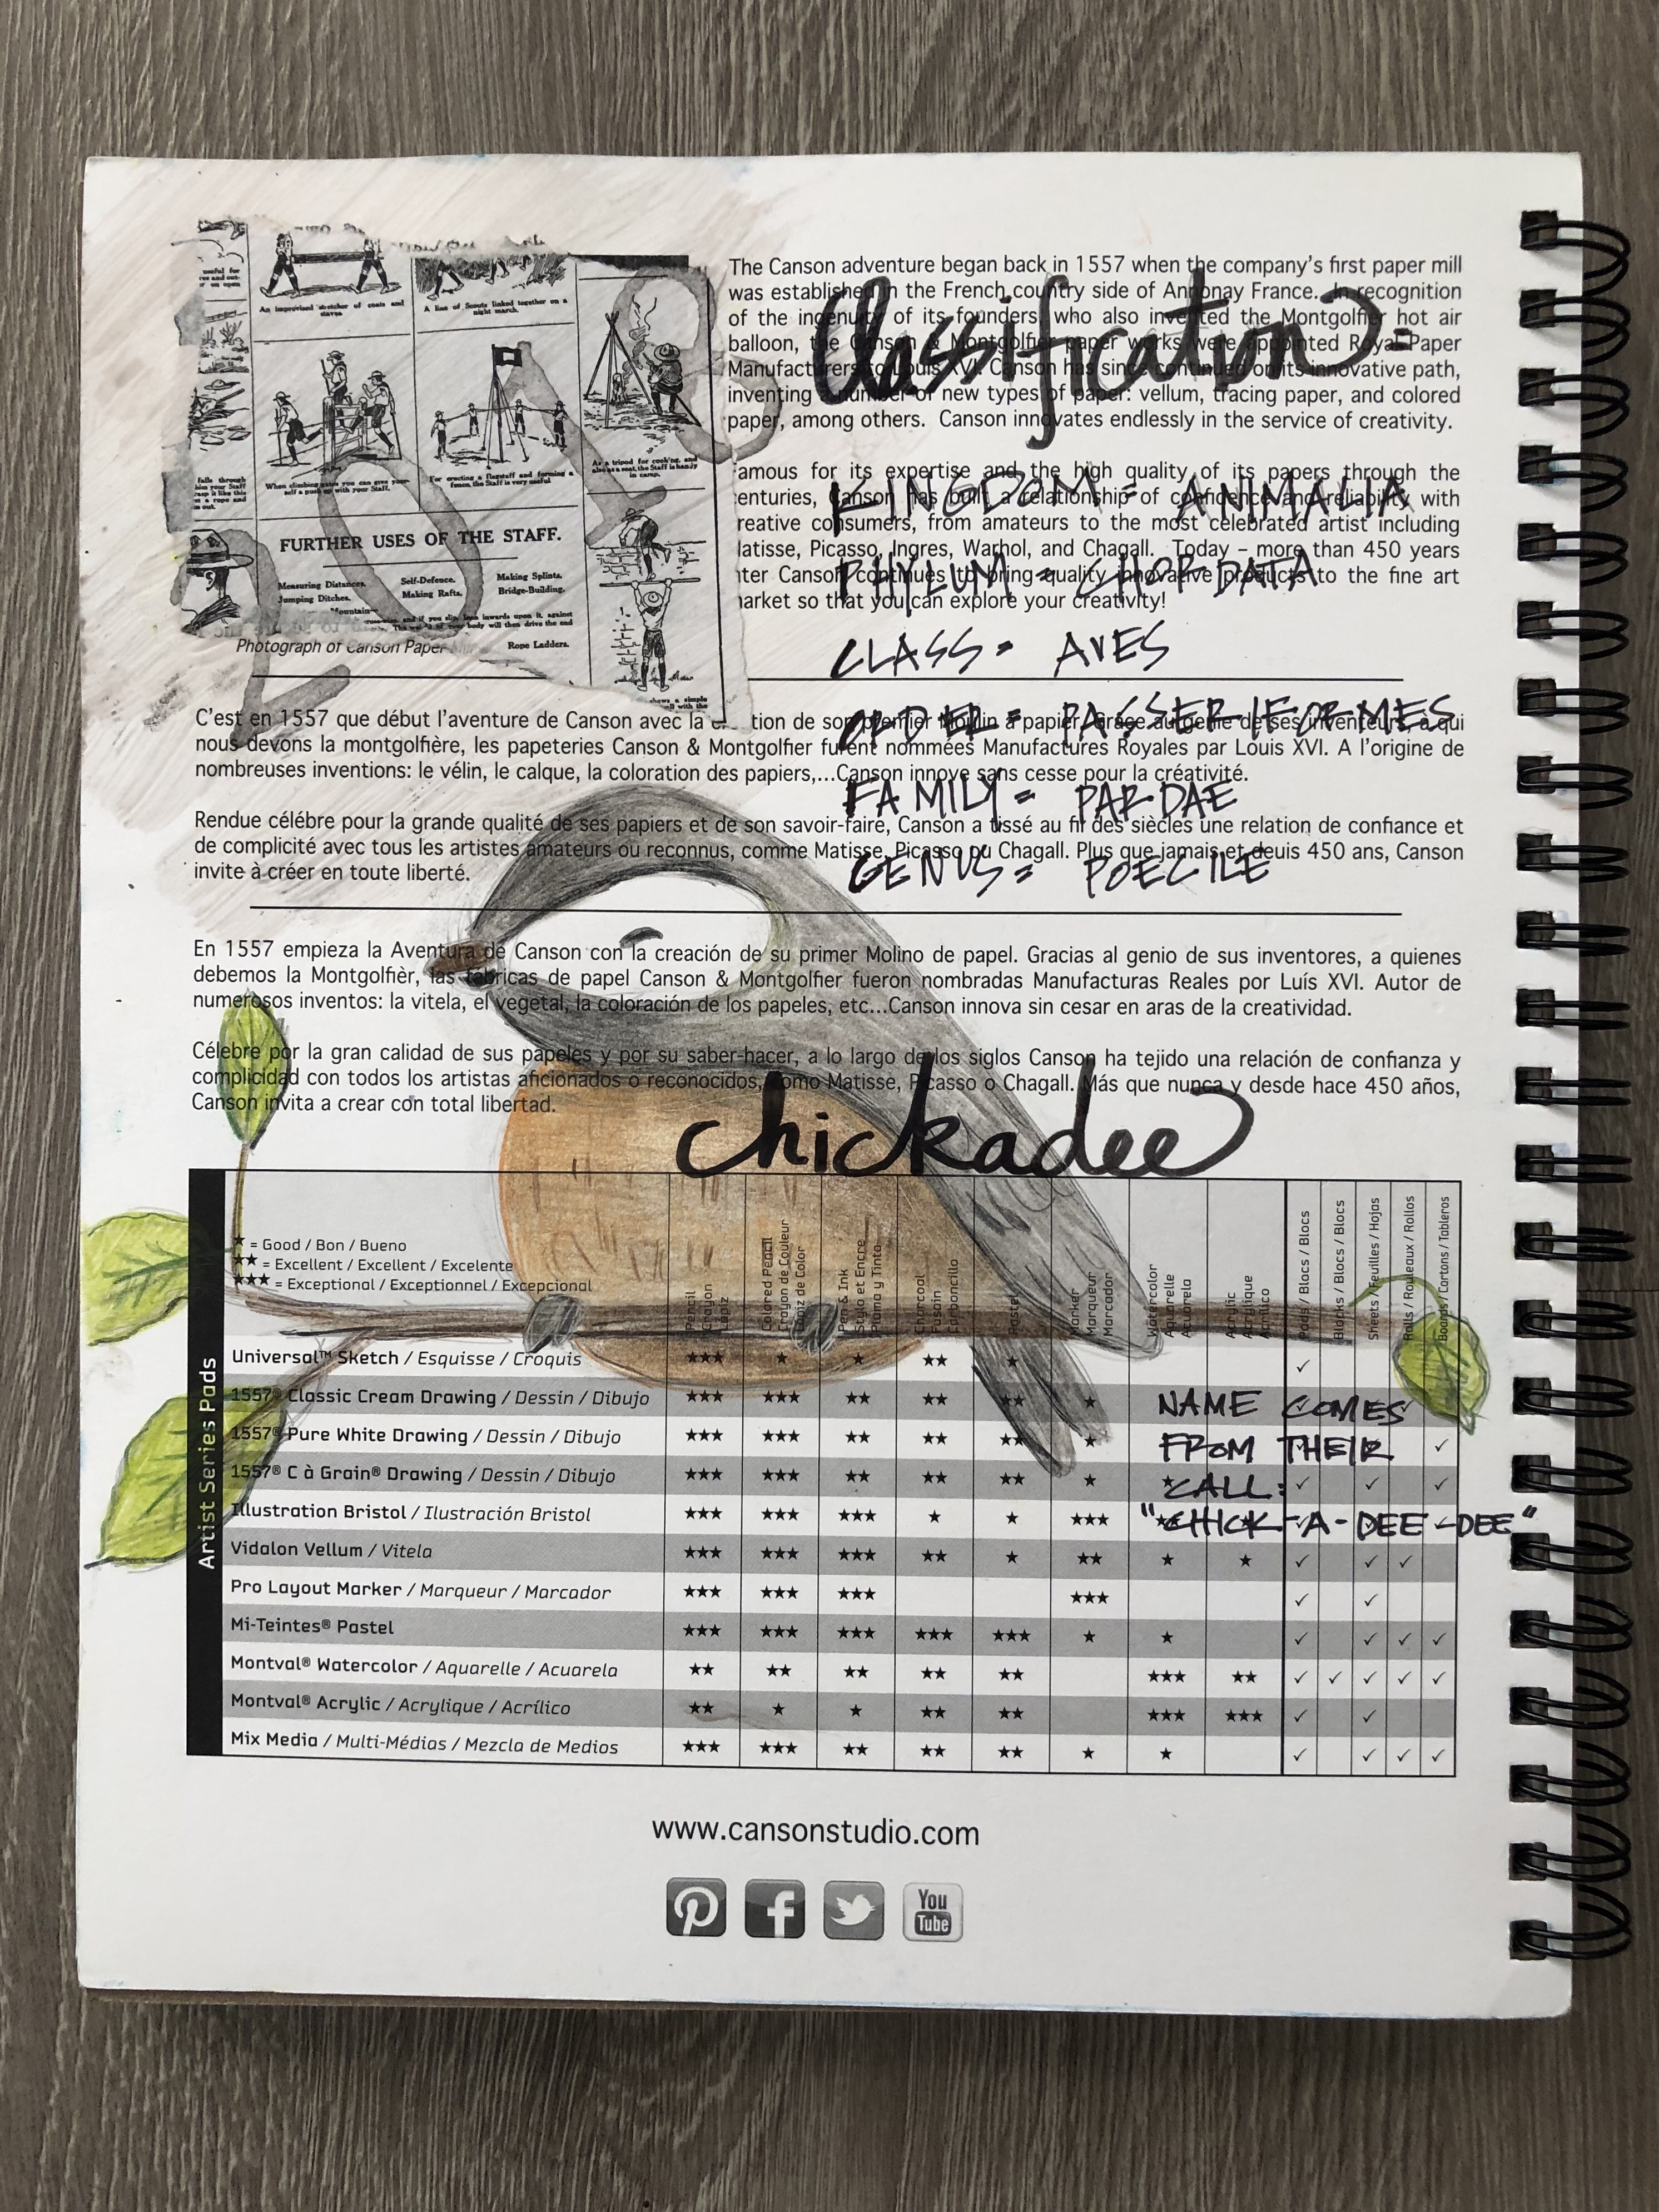 An improvised stretcher of coats and staves
A line of Scouts linked together on a night march.
When climbing gates you can give yourself a push up with your Staff.
For erecting a flagstaff and forming a fence, the Staff is very useful
As a tripod for cooking, and also as a seat, the Staff is handy in camp.
FURTHER USES OF THE STAFF.
Measuring Distances. Self-Defence. Making Splints.
Jumping Ditches. Making Rafts. Bridge-Building.
Rope Ladders.
Photograph of Canson Paper
The Canson adventure began back in 1557 when the company's first paper mill
was established in the French country side of Annonay France. In recognition
of the ingenuity of its founders, who also invented the Montgolfier hot air
balloon, the Canson & Montgolfier paper works were appointed Royal Paper
Manufacturers to Louis XVI. Canson has since continued on its innovative path,
inventing a number of new types of paper: vellum, tracing paper, and colored
paper, among others. Canson innovates endlessly in the service of creativity.
Classification=
amous for its expertise and the high quality of its papers through the
enturies, Canson has built a relationship of confidence and reliability with
reative consumers, from amateurs to the most celebrated artist including
latisse, Picasso, Ingres, Warhol, and Chagall. Today – more than 450 years
ter Canson continues to bring quality innovative products to the fine art
arket so that you can explore your creativity!
KINGDOM = ANIMALIA
PHYLUM = CHORDATA
CLASS = AVES
ORDER = PASSERIFORMES
FAMILY = PARDAE
GENUS = POECILE
C'est en 1557 que début l'aventure de Canson avec la tion de son premier Moulin à papier. Grâce au génie de ses inventeurs, à qui
nous devons la montgolfière, les papeteries Canson & Montgolfier furent nommées Manufactures Royales par Louis XVI. A l'origine de
nombreuses inventions: le vélin, le calque, la coloration des papiers,...Canson innove sans cesse pour la créativité.
Rendue célébre pour la grande qualité de ses papiers et de son savoir-faire, Canson a tissé au fil des siècles une relation de confiance et
de complicité avec tous les artistes amateurs ou reconnus, comme Matisse, Picasso ou Chagall. Plus que jamais et deuis 450 ans, Canson
invite à créer en toute liberté.
En 1557 empieza la Aventura de Canson con la creación de su primer Molino de papel. Gracias al genio de sus inventores, a quienes
debemos la Montgolfièr, las fábricas de papel Canson & Montgolfier fueron nombradas Manufacturas Reales por Luís XVI. Autor de
numerosos inventos: la vitela, el vegetal, la coloración de los papeles, etc...Canson innova sin cesar en aras de la creatividad.
Célebre por la gran calidad de sus papeles y por su saber-hacer, a lo largo de los siglos Canson ha tejido una relación de confianza y
complicidad con todos los artistas aficionados o reconocidos, como Matisse, Picasso o Chagall. Más que nunca y desde hace 450 años,
Canson invita a crear con total libertad.
chickadee
Artist Series Pads
★ = Good / Bon / Bueno
★★ = Excellent / Excellent / Excelente
★★★ = Exceptional / Exceptionnel / Excepcional
Pencil
Crayon
Lápiz
Colored Pencil
Crayon de Couleur
Lápiz de Color
Pen & Ink
Stylo et Encre
Pluma y Tinta
Charcoal
Fusain
Carboncillo
Pastel
Marker
Marqueur
Marcador
Watercolor
Aquarelle
Acuarela
Acrylic
Acrylique
Acrílico
Pads / Blocs / Blocs
Blocks / Blocs / Blocs
Sheets / Feuilles / Hojas
Rolls / Rouleaux / Rollos
Boards / Cartons / Tableros
Universal™ Sketch / Esquisse / Croquis ★★★ ★ ★ ★★ ★ ✓
1557® Classic Cream Drawing / Dessin / Dibujo ★★★ ★★★ ★★ ★★ ★★ ★
1557® Pure White Drawing / Dessin / Dibujo ★★★ ★★★ ★★ ★★ ★★ ★ ✓
1557® C à Grain® Drawing / Dessin / Dibujo ★★★ ★★★ ★★ ★★ ★★ ★ ★ ✓ ✓ ✓
Illustration Bristol / Ilustración Bristol ★★★ ★★★ ★★★ ★ ★ ★★★
Vidalon Vellum / Vitela ★★★ ★★★ ★★★ ★★ ★ ★★ ★ ★ ✓ ✓ ✓
Pro Layout Marker / Marqueur / Marcador ★★★ ★★★ ★★★ ★★★ ✓ ✓
Mi-Teintes® Pastel ★★★ ★★★ ★★★ ★★★ ★★★ ★ ★ ✓ ✓ ✓ ✓
Montval® Watercolor / Aquarelle / Acuarela ★★ ★★ ★★ ★★ ★★ ★★★ ★★ ✓ ✓ ✓ ✓ ✓
Montval® Acrylic / Acrylique / Acrílico ★★ ★ ★ ★★ ★★ ★★★ ★★★ ✓ ✓
Mix Media / Multi-Médias / Mezcla de Medios ★★★ ★★★ ★★ ★★ ★★ ★ ★ ✓ ✓ ✓ ✓
NAME COMES
FROM THEIR
CALL:
"CHICK-A-DEE-DEE"
www.cansonstudio.com
You
Tube